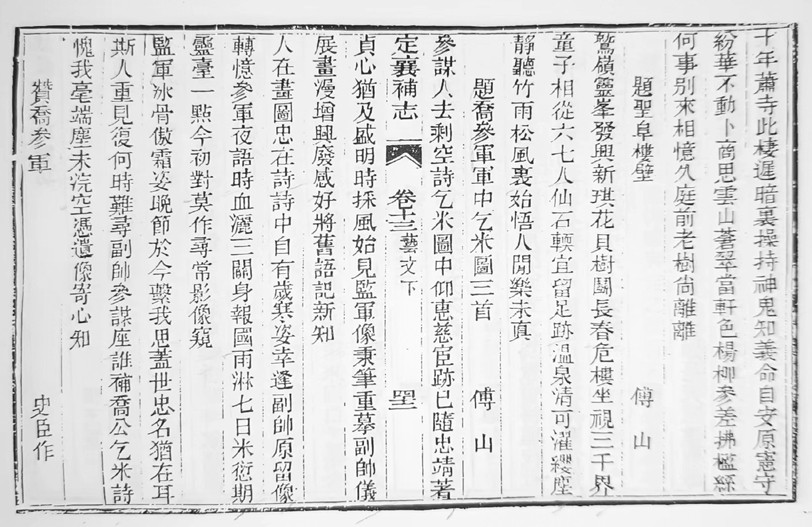 十年蕭寺此棲遲暗裏操持神鬼知義命自安原憲守
紛華不動卜商思雲山蒼翠當軒色楊柳參差拂檻絲
何事別來相憶久庭前老樹尙離離
題聖阜樓壁 傅山
鷲嶺靈峯發興新琪花貝樹鬪長春危樓坐視三千界
童子相從六七人仙石輭宜留足跡溫泉清可濯纓塵
靜聽竹雨松風裏始悟人閒樂未真
題喬參軍軍中乞米圖三首 傅山
參謀人去剩空詩乞米圖中仰惠慈宦跡已隨忠靖著
定襄補志 卷十三藝文下
貞心猶及盛明時採風始見監軍像秉筆重摹副帥儀
展畫漫增興廢感好將舊語記新知
人在畫圖忠在詩詩中自有歲寒姿幸逢副帥原留像
轉憶參軍夜語時血灑三關身報國雨淋七日米愆期
靈臺一點今初對莫作尋常影像窺
監軍冰骨傲霜姿晚節於今繫我思蓋世忠名猶在耳
斯人重見復何時難尋副帥參謀座誰補喬公乞米詩
愧我毫端塵未浣空憑遺像寄心知
贊喬參軍 史臣作